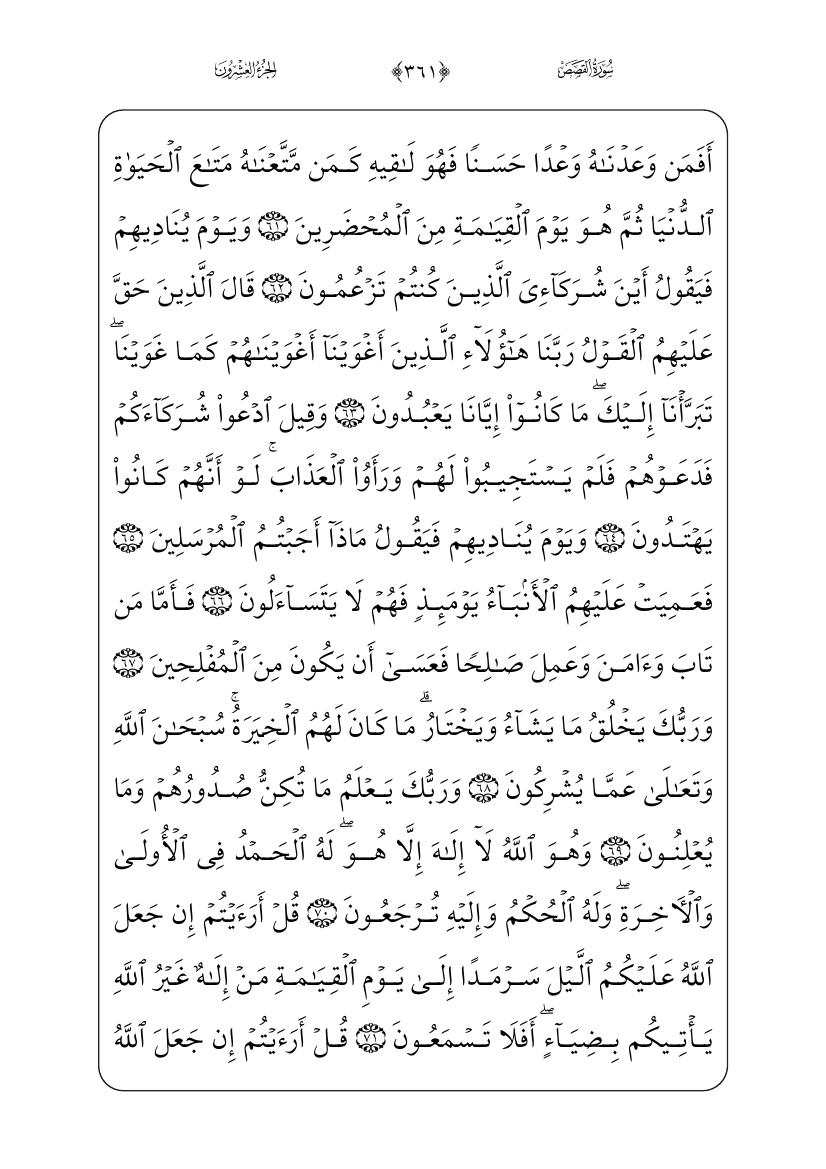 سُورَةُ القَصَصِ ﴿٣٦١﴾ الجُزْءُ العِشْرُونَ
أَفَمَن وَعَدۡنَٰهُ وَعۡدًا حَسَنٗا فَهُوَ لَٰقِيهِ كَمَن مَّتَّعۡنَٰهُ مَتَٰعَ ٱلۡحَيَوٰةِ
ٱلدُّنۡيَا ثُمَّ هُوَ يَوۡمَ ٱلۡقِيَٰمَةِ مِنَ ٱلۡمُحۡضَرِينَ ٦١ وَيَوۡمَ يُنَادِيهِمۡ
فَيَقُولُ أَيۡنَ شُرَكَآءِيَ ٱلَّذِينَ كُنتُمۡ تَزۡعُمُونَ ٦٢ قَالَ ٱلَّذِينَ حَقَّ
عَلَيۡهِمُ ٱلۡقَوۡلُ رَبَّنَا هَٰٓؤُلَآءِ ٱلَّذِينَ أَغۡوَيۡنَآ أَغۡوَيۡنَٰهُمۡ كَمَا غَوَيۡنَاۖ
تَبَرَّأۡنَآ إِلَيۡكَۖ مَا كَانُوٓاْ إِيَّانَا يَعۡبُدُونَ ٦٣ وَقِيلَ ٱدۡعُواْ شُرَكَآءَكُمۡ
فَدَعَوۡهُمۡ فَلَمۡ يَسۡتَجِيبُواْ لَهُمۡ وَرَأَوُاْ ٱلۡعَذَابَۚ لَوۡ أَنَّهُمۡ كَانُواْ
يَهۡتَدُونَ ٦٤ وَيَوۡمَ يُنَادِيهِمۡ فَيَقُولُ مَاذَآ أَجَبۡتُمُ ٱلۡمُرۡسَلِينَ ٦٥
فَعَمِيَتۡ عَلَيۡهِمُ ٱلۡأَنۢبَآءُ يَوۡمَئِذٖ فَهُمۡ لَا يَتَسَآءَلُونَ ٦٦ فَأَمَّا مَن
تَابَ وَءَامَنَ وَعَمِلَ صَٰلِحٗا فَعَسَىٰٓ أَن يَكُونَ مِنَ ٱلۡمُفۡلِحِينَ ٦٧
وَرَبُّكَ يَخۡلُقُ مَا يَشَآءُ وَيَخۡتَارُۗ مَا كَانَ لَهُمُ ٱلۡخِيَرَةُۚ سُبۡحَٰنَ ٱللَّهِ
وَتَعَٰلَىٰ عَمَّا يُشۡرِكُونَ ٦٨ وَرَبُّكَ يَعۡلَمُ مَا تُكِنُّ صُدُورُهُمۡ وَمَا
يُعۡلِنُونَ ٦٩ وَهُوَ ٱللَّهُ لَآ إِلَٰهَ إِلَّا هُوَۖ لَهُ ٱلۡحَمۡدُ فِي ٱلۡأُولَىٰ
وَٱلۡأٓخِرَةِۖ وَلَهُ ٱلۡحُكۡمُ وَإِلَيۡهِ تُرۡجَعُونَ ٧٠ قُلۡ أَرَءَيۡتُمۡ إِن جَعَلَ
ٱللَّهُ عَلَيۡكُمُ ٱلَّيۡلَ سَرۡمَدًا إِلَىٰ يَوۡمِ ٱلۡقِيَٰمَةِ مَنۡ إِلَٰهٌ غَيۡرُ ٱللَّهِ
يَأۡتِيكُم بِضِيَآءٍۖ أَفَلَا تَسۡمَعُونَ ٧١ قُلۡ أَرَءَيۡتُمۡ إِن جَعَلَ ٱللَّهُ